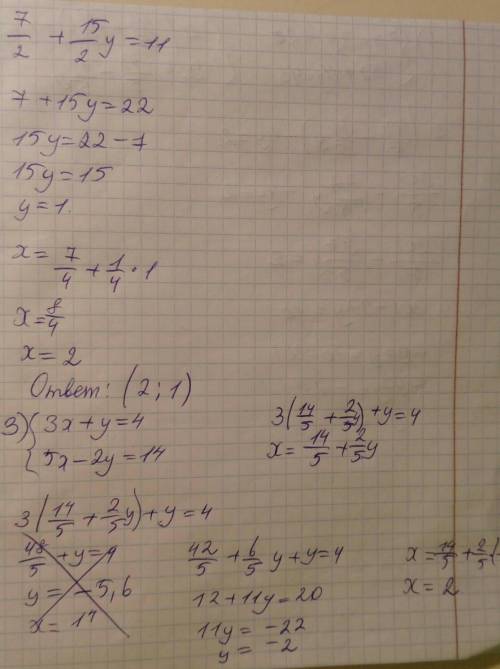 7/2 + 15/2 y = 11
7 + 15y = 22
15y = 22 - 7
15y = 15
y = 1.
x = 7/4 + 1/4 · 1
x = 8/4
x = 2
Ответ: (2; 1)
3) { 3x + y = 4
5x - 2y = 14
3(14/5 + 2/5 y) + y = 4
x = 14/5 + 2/5 y
3(14/5 + 2/5 y) + y = 4
48/5 + y = 4
y = -5,6
x = 14
42/5 + 6/5 y + y = 4
12 + 11y = 20
11y = -22
y = -2
x = 14/5 + 2/5 (-
x = 2